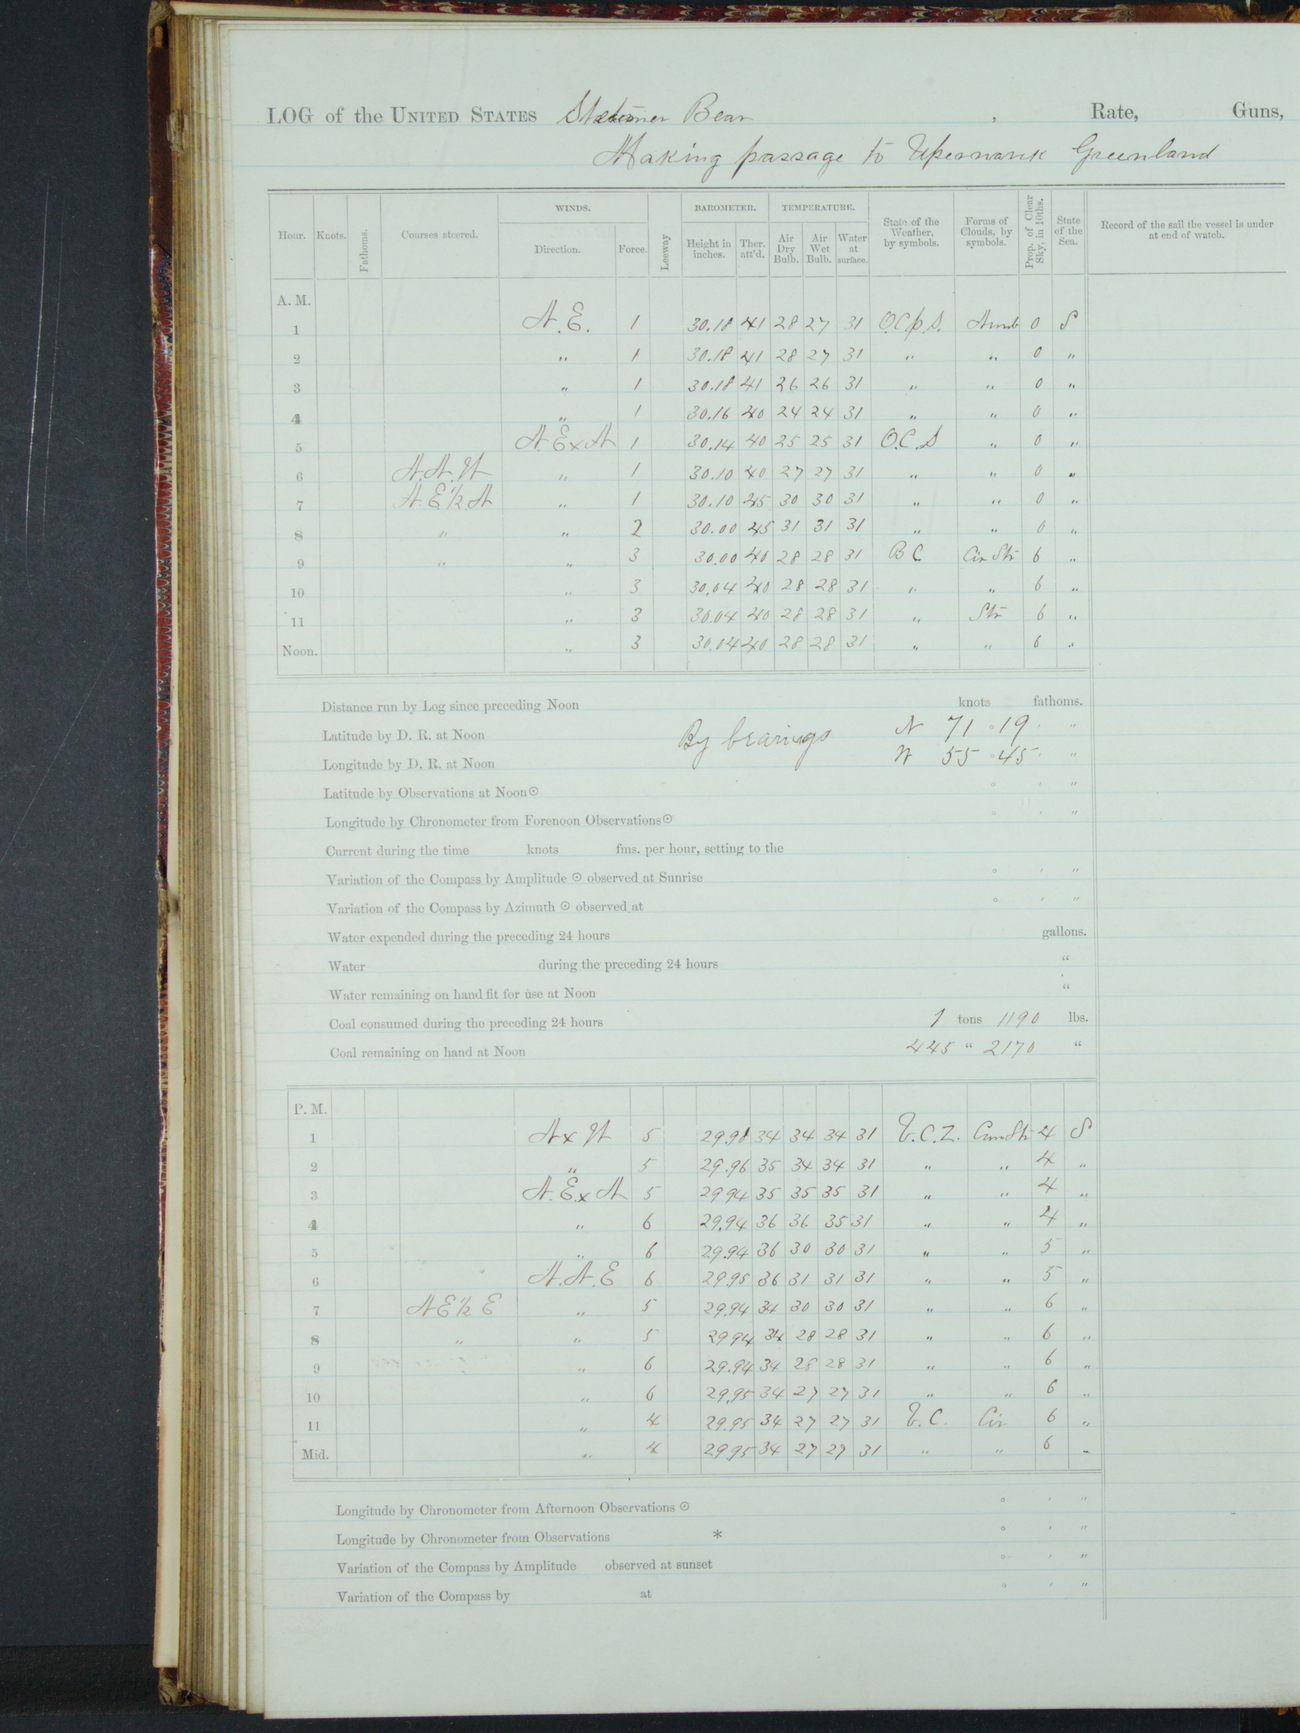 LOG of the UNITED STATES Steamer Bear , Rate, Guns,
Making passage to Upernavik Greenland
Hour. Knots. Fathoms. Courses steered. WINDS. Direction. Force. Leeway BAROMETER. Height in inches. Ther. att'd. TEMPERATURE. Air Dry Bulb. Air Wet Bulb. Water at surface. State of the Weather, by symbols. Forms of Clouds, by symbols. Prop. of Clear Sky, in 10ths. State of the Sea. Record of the sail the vessel is under at end of watch.
A. M.
1 N.E. 1 30.18 41 28 27 31 O.C.p.S. Nimb 0 S
2 " 1 30.18 41 28 27 31 " " 0 "
3 " 1 30.18 41 26 26 31 " " 0 "
4 " 1 30.16 40 24 24 31 " " 0 "
5 N.E x N 1 30.14 40 25 25 31 O.C.S " 0 "
6 N.N.W " 1 30.10 40 27 27 31 " " 0 "
7 N.E½N " 1 30.10 45 30 30 31 " " 0 "
8 " " 2 30.00 45 31 31 31 " " 0 "
9 " " 3 30.00 40 28 28 31 B C. Cir Str 6 "
10 " 3 30.04 40 28 28 31 " " 6 "
11 " 3 30.04 40 28 28 31 " Str 6 "
Noon. " 3 30.04 40 28 28 31 " " 6 "
Distance run by Log since preceding Noon knots fathoms.
Latitude by D. R. at Noon By bearings N 71 ° 19 ' "
Longitude by D. R. at Noon W 55 ° 45 ' "
Latitude by Observations at Noon ☉ ° ' "
Longitude by Chronometer from Forenoon Observations ☉ ° ' "
Current during the time knots fms. per hour, setting to the
Variation of the Compass by Amplitude ☉ observed at Sunrise ° ' "
Variation of the Compass by Azimuth ☉ observed at ° ' "
Water expended during the preceding 24 hours gallons.
Water during the preceding 24 hours "
Water remaining on hand fit for use at Noon "
Coal consumed during the preceding 24 hours 1 tons 1190 lbs.
Coal remaining on hand at Noon 445 " 2170 "
P. M.
1 N x W 5 29.98 34 34 34 31 b.C.Z. Cum Str 4 S
2 " 5 29.96 35 34 34 31 " " 4 "
3 N.E. x N 5 29.94 35 35 35 31 " " 4 "
4 " 6 29.94 36 36 35 31 " " 4 "
5 " 6 29.94 36 30 30 31 " " 5 "
6 N.N.E 6 29.95 36 31 31 31 " " 5 "
7 N E ½ E " 5 29.94 34 30 30 31 " " 6 "
8 " " 5 29.94 34 28 28 31 " " 6 "
9 " 6 29.94 34 28 28 31 " " 6 "
10 " 6 29.95 34 27 27 31 " " 6 "
11 " 4 29.95 34 27 27 31 b.C. Cir 6 "
Mid. " 4 29.95 34 27 27 31 " " 6 "
Longitude by Chronometer from Afternoon Observations ☉ ° ' "
Longitude by Chronometer from Observations * ° ' "
Variation of the Compass by Amplitude observed at sunset ° ' "
Variation of the Compass by at ° ' "